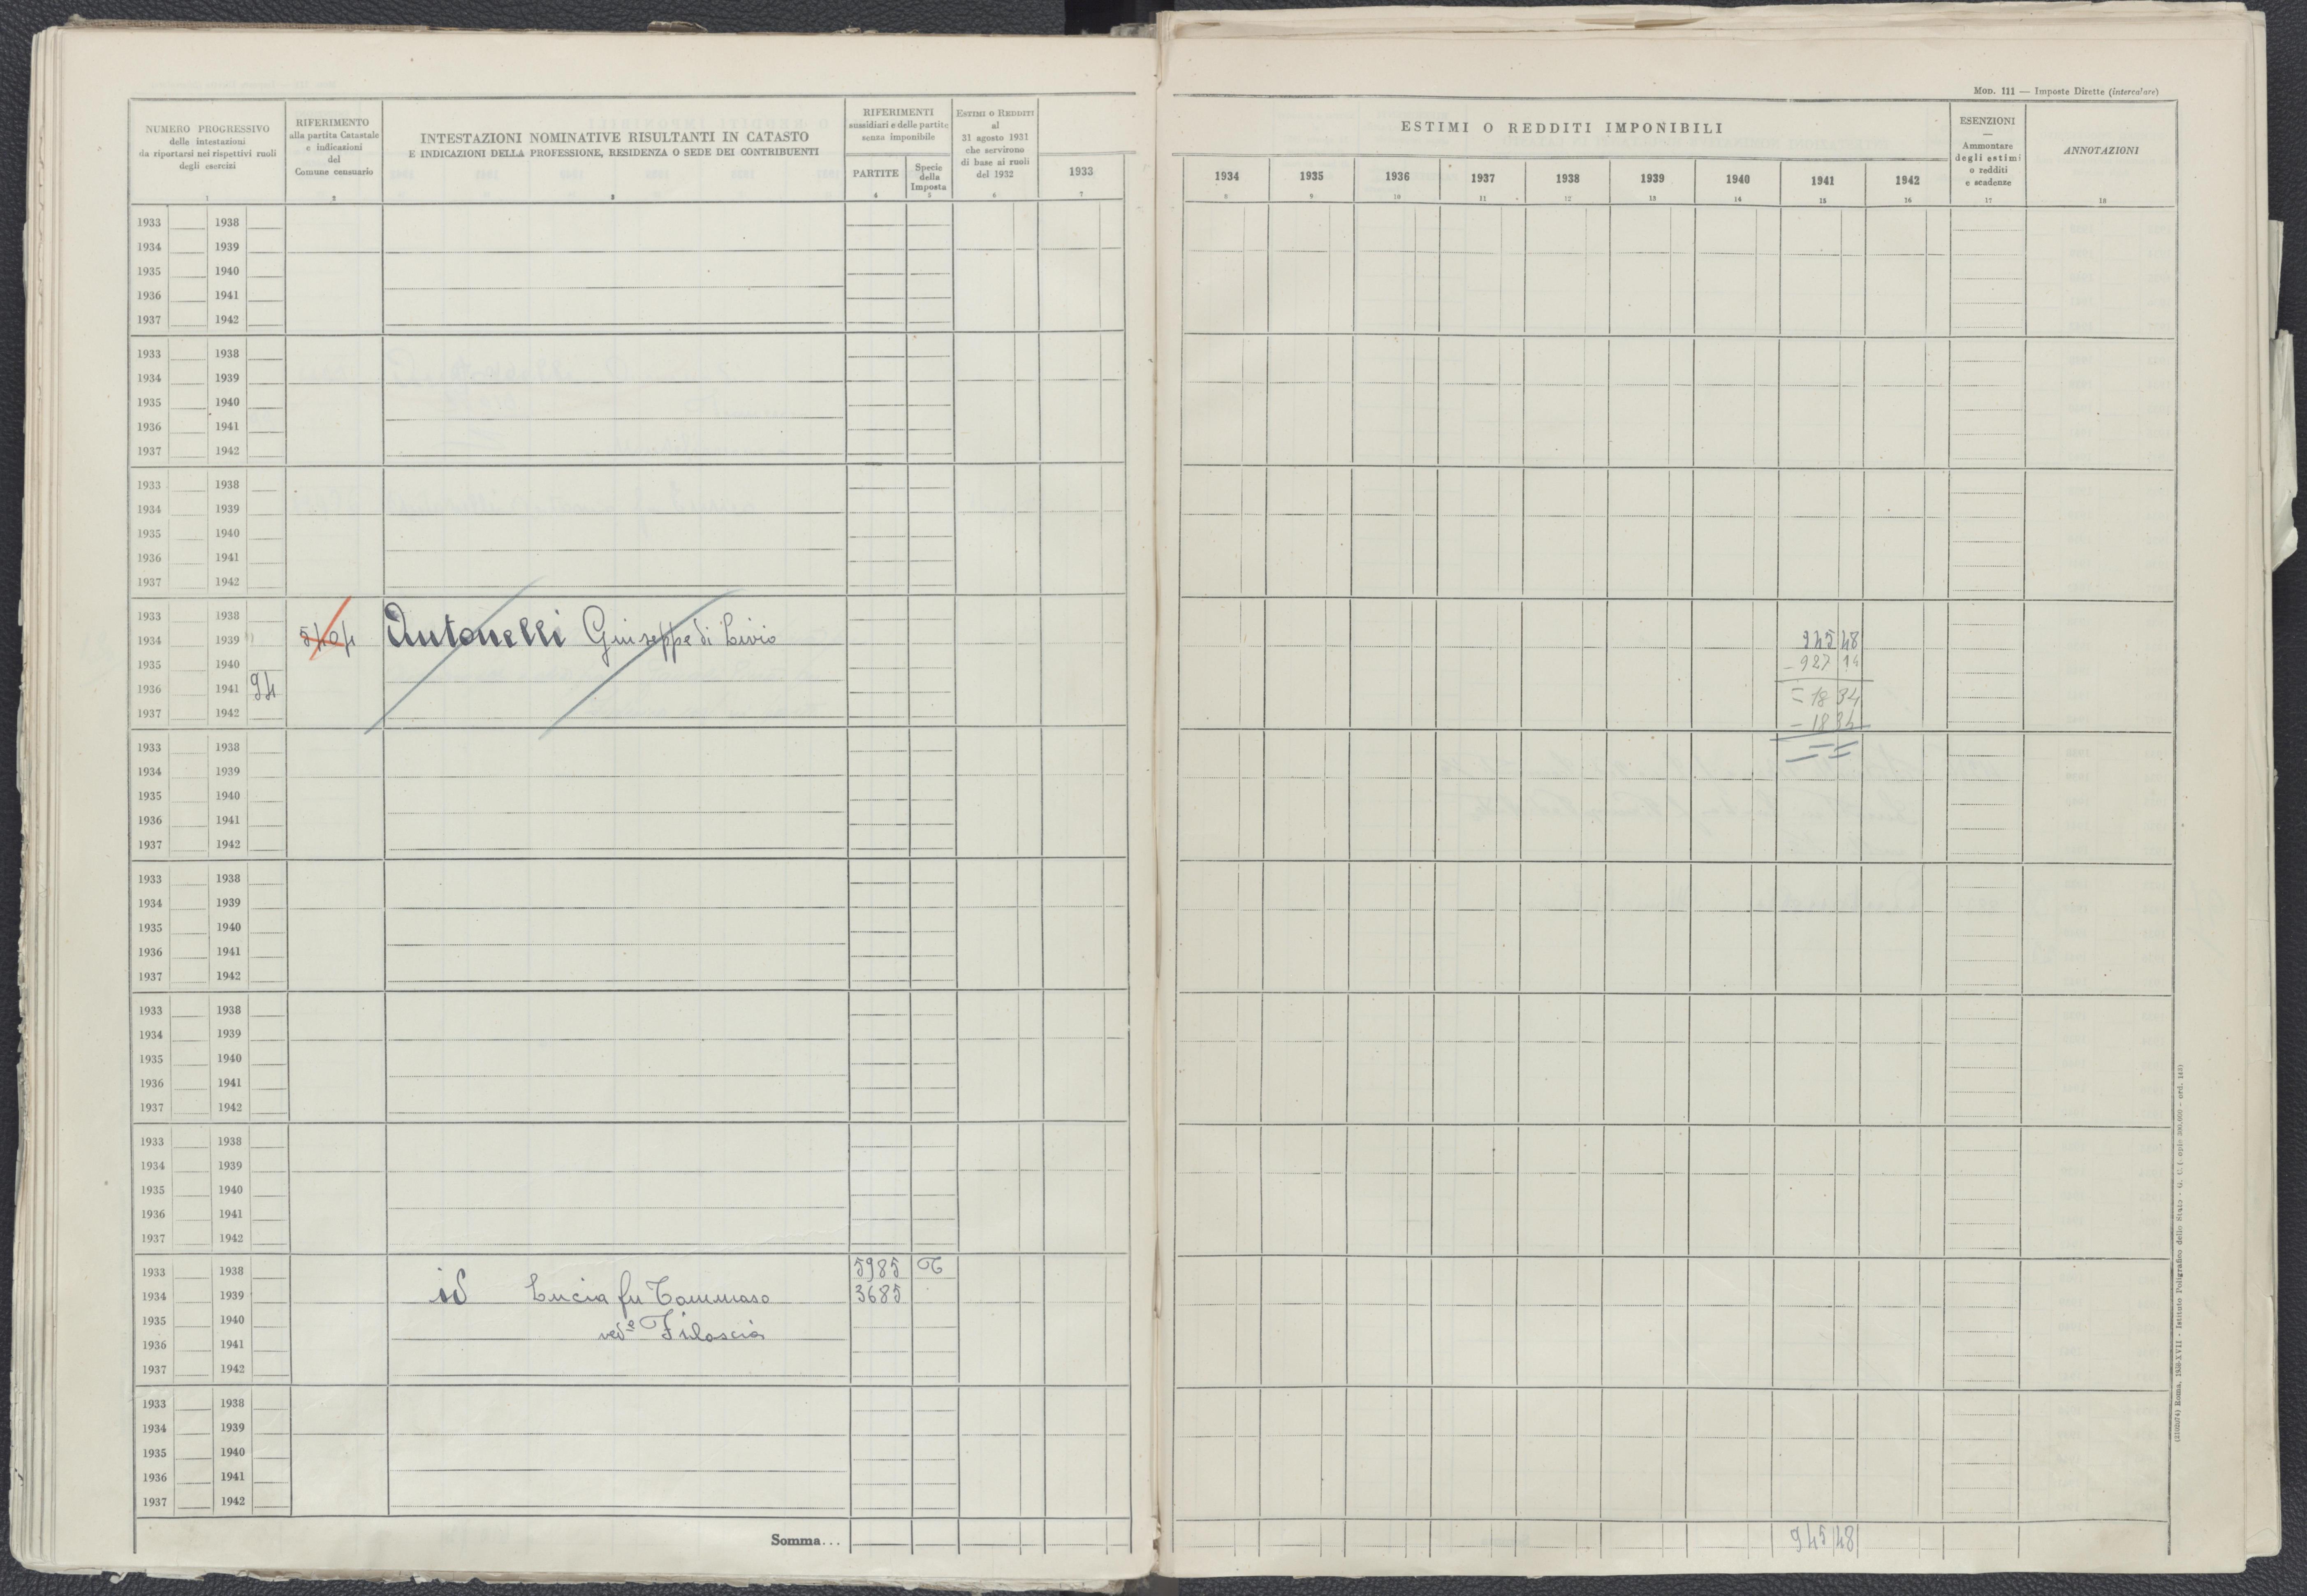 MOD. 111 — Imposte Dirette (intercalare)
NUMERO PROGRESSIVO
delle intestazioni
da riportarsi nei rispettivi ruoli
degli esercizi
1
RIFERIMENTO
alla partita Catastale
e indicazioni
del
Comune censuario
2
INTESTAZIONI NOMINATIVE RISULTANTI IN CATASTO
E INDICAZIONI DELLA PROFESSIONE, RESIDENZA O SEDE DEI CONTRIBUENTI
3
RIFERIMENTI
sussidiari e delle partite
senza imponibile
PARTITE
4
Specie
della
Imposta
5
ESTIMI O REDDITI
al
31 agosto 1931
che servirono
di base ai ruoli
del 1932
6
1933
7
ESTIMI O REDDITI IMPONIBILI
1934 1935 1936 1937 1938 1939 1940 1941 1942
8 9 10 11 12 13 14 15 16
ESENZIONI
—
Ammontare
degli estimi
o redditi
e scadenze
17
ANNOTAZIONI
18
1933 1938
1934 1939
1935 1940
1936 1941
1937 1942
1933 1938
1934 1939
1935 1940
1936 1941
1937 1942
1933 1938
1934 1939
1935 1940
1936 1941
1937 1942
1933 1938
1934 1939 5404 Antonelli Giuseppe di Livio 945 48
1935 1940 - 927 14
1936 1941 94 = 18 34
1937 1942 - 18 34
1933 1938
1934 1939
1935 1940
1936 1941
1937 1942
1933 1938
1934 1939
1935 1940
1936 1941
1937 1942
1933 1938
1934 1939
1935 1940
1936 1941
1937 1942
1933 1938
1934 1939
1935 1940
1936 1941
1937 1942
1933 1938 5985 T
1934 1939 id Lucia fu Tommaso 3685
1935 1940 ved.ª Filoscia
1936 1941
1937 1942
1933 1938
1934 1939
1935 1940
1936 1941
1937 1942
Somma... 945 48